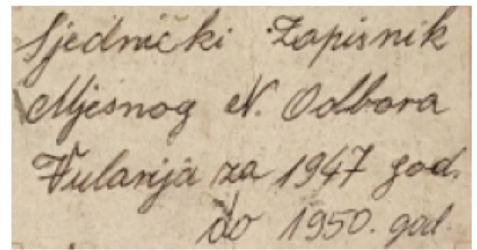 Sjednički Zapisnik
Mjesnog N. Odbora
Vularija za 1947 god.
do 1950. god